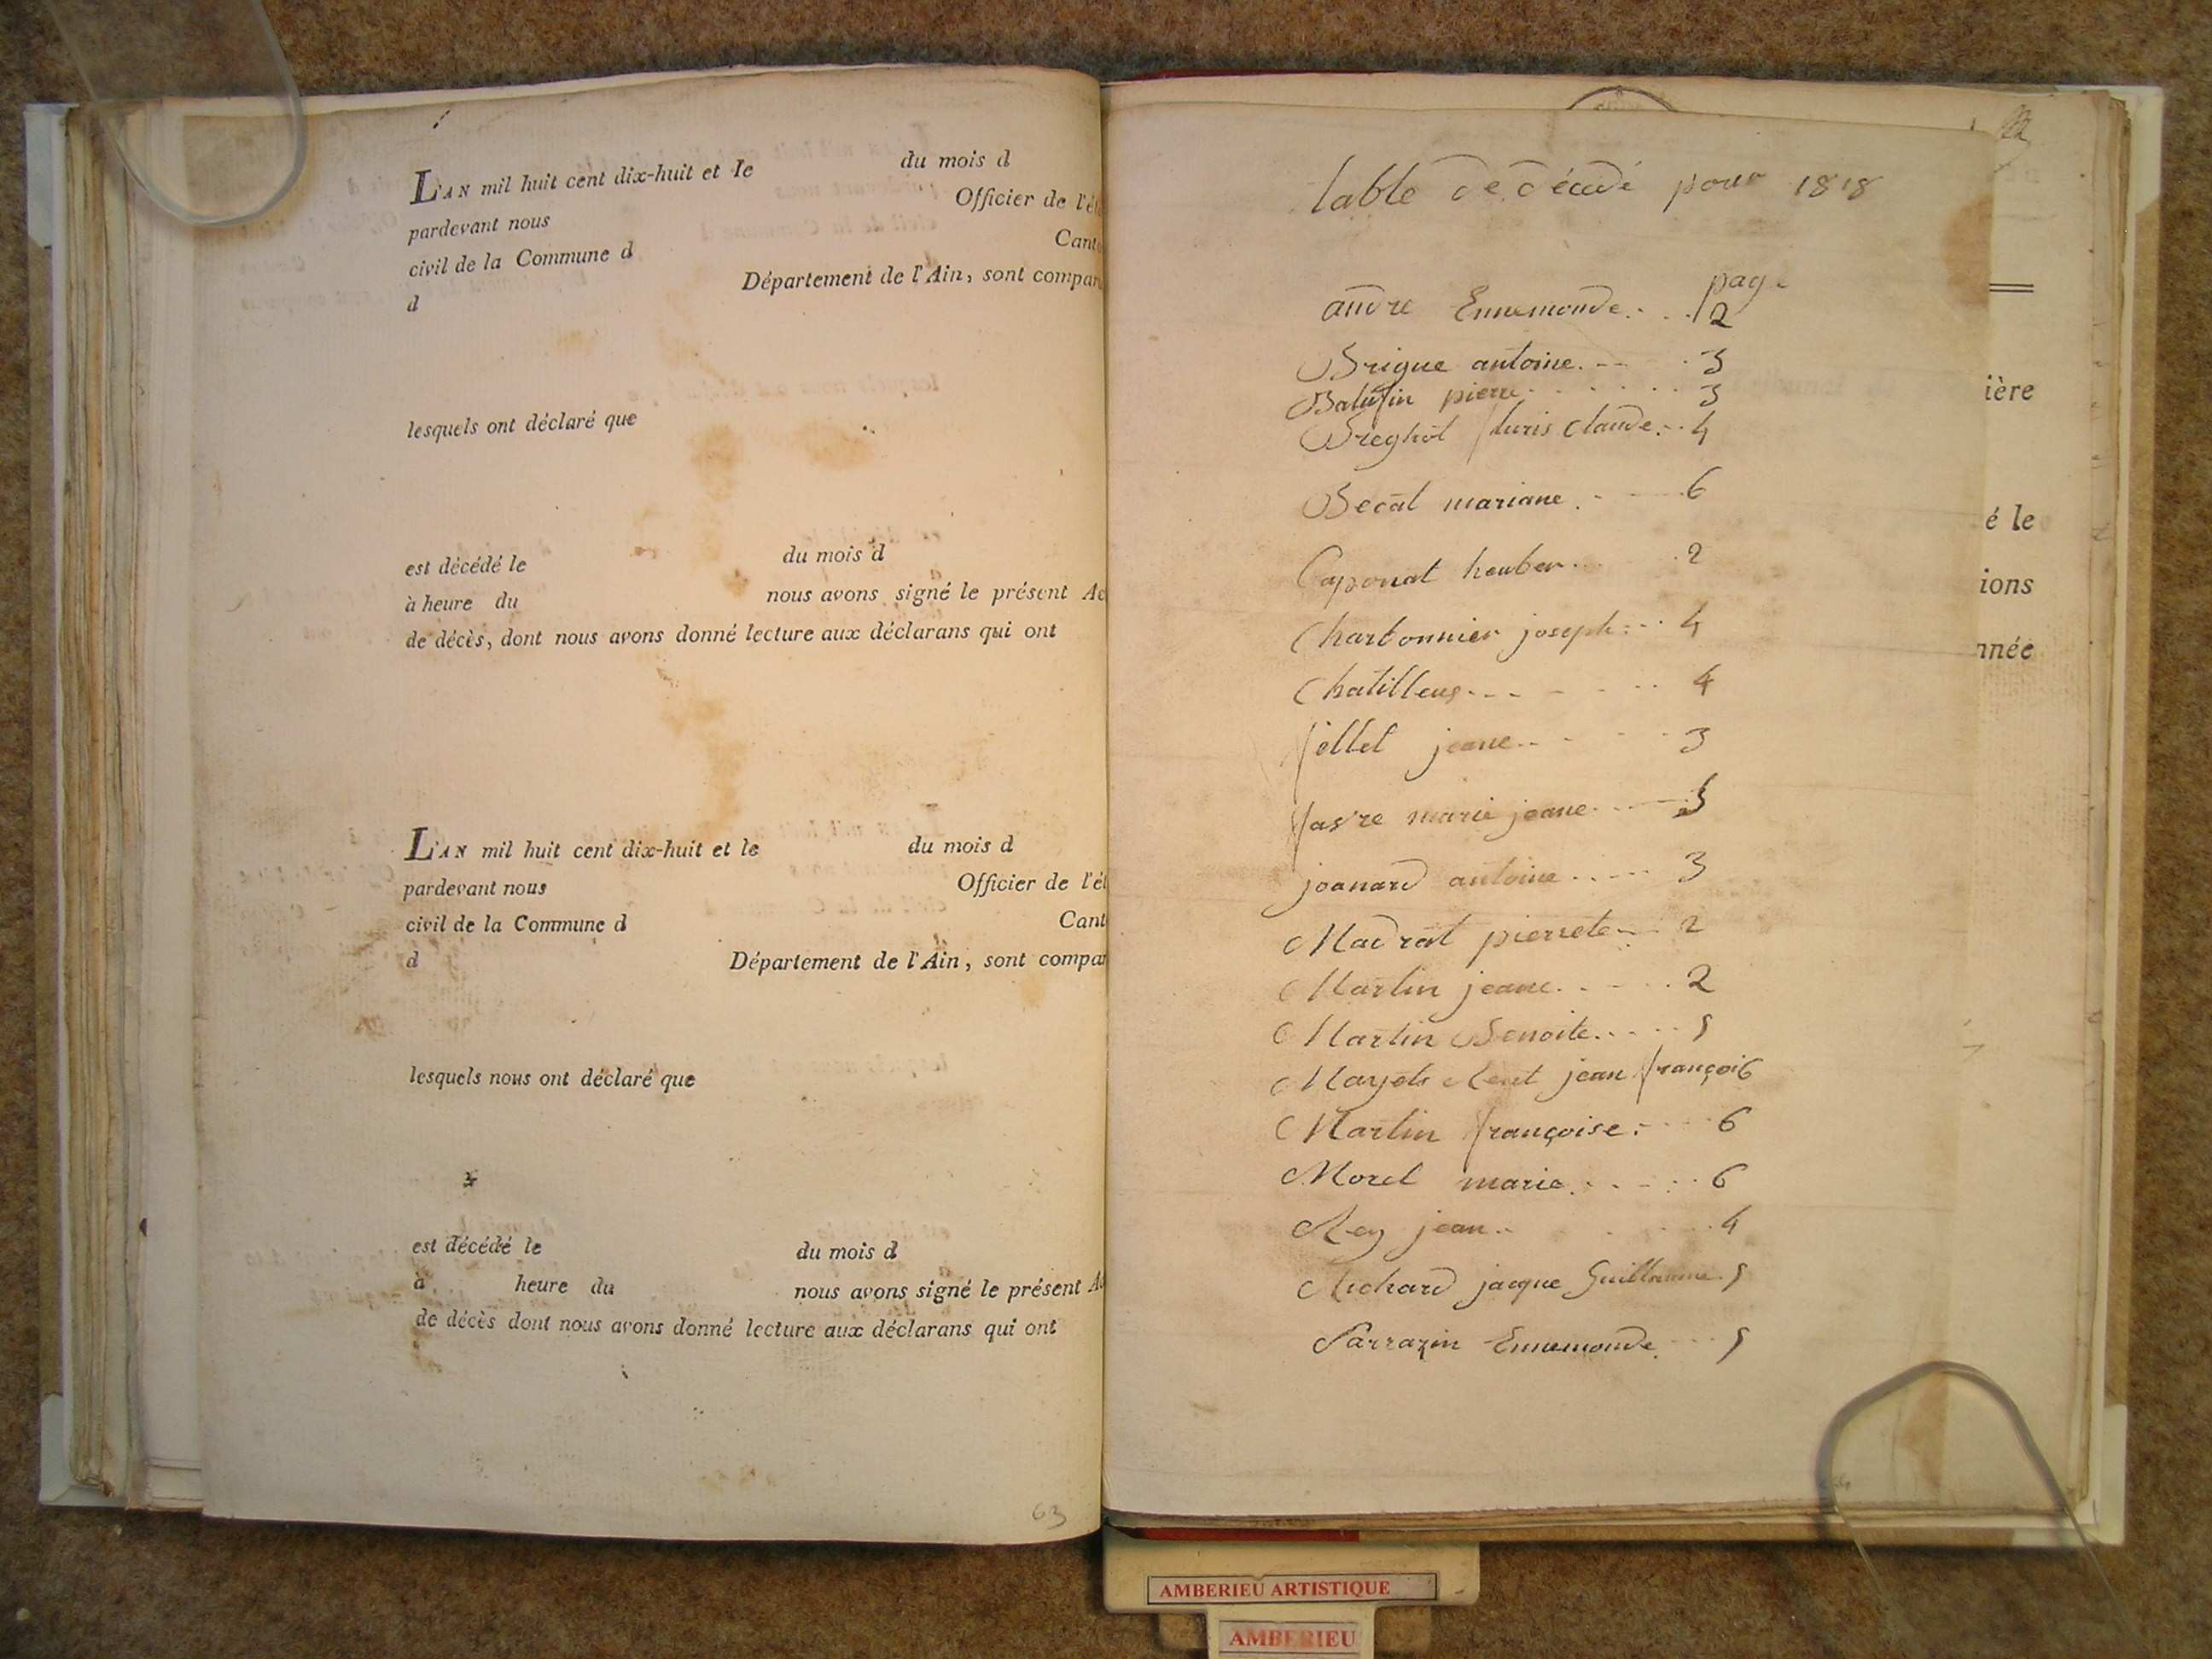 L'AN mil huit cent dix-huit et le du mois d
pardevant nous Officier de l'ét
civil de la Commune d Canto
d Département de l'Ain, sont compar
lesquels ont déclaré que
est décédé le du mois d
à heure du nous avons signé le présent Ac
de décès, dont nous avons donné lecture aux déclarans qui ont
L'AN mil huit cent dix-huit et le du mois d
pardevant nous Officier de l'ét
civil de la Commune d Cant
d Département de l'Ain, sont compar
lesquels nous ont déclaré que
est décédé le du mois d
à heure du nous avons signé le présent Ac
de décès dont nous avons donné lecture aux déclarans qui ont
63
table de décadé pour 1818
page
andre Ennemonde 2
Brigue antoine 3
Balufin pierre 3
Breghot claude 4
Becat mariane 6
Caponat 2
Charbonnier joseph 4
Chatillens 4
fillet jeane 3
favre marie jeane 3
joanard antoine 3
Madrat pierrete 2
Martin jeane 2
Martin Benoite 5
jean françois 6
Martin françoise 6
Morel marie 6
Rey jean 4
Richard jacque Guillaume 5
Sarrazin Ennemonde 5
ière
é le
ions
nnée
AMBERIEU ARTISTIQUE
AMBERIEU